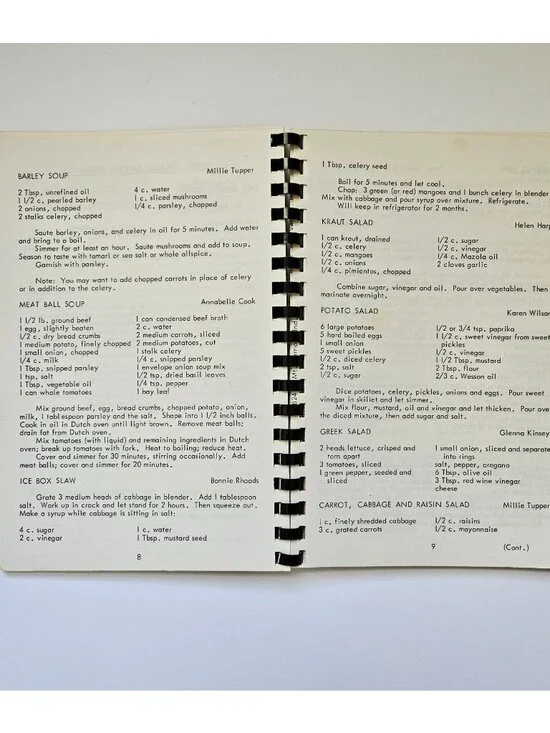 BARLEY SOUP Millie Tupper
2 Tbsp. unrefined oil 4 c. water
1 1/2 c. pearled barley 1 c. sliced mushrooms
2 onions, chopped 1/4 c. parsley, chopped
2 stalks celery, chopped
Saute barley, onions, and celery in oil for 5 minutes. Add water
and bring to a boil.
Simmer for at least an hour. Saute mushrooms and add to soup.
Season to taste with tamari or sea salt or whole allspice.
Garnish with parsley.
Note: You may want to add chopped carrots in place of celery
or in addition to the celery.
MEAT BALL SOUP Annabelle Cook
1 1/2 lb. ground beef 1 can condensed beef broth
1 egg, slightly beaten 2 c. water
1/2 c. dry bread crumbs 2 medium carrots, sliced
1 medium potato, finely chopped 2 medium potatoes, cut
1 small onion, chopped 1 stalk celery
1/4 c. milk 1/4 c. snipped parsley
1 Tbsp. snipped parsley 1 envelope onion soup mix
1 tsp. salt 1/2 tsp. dried basil leaves
1 Tbsp. vegetable oil 1/4 tsp. pepper
1 can whole tomatoes 1 bay leaf
Mix ground beef, egg, bread crumbs, chopped potato, onion,
milk, 1 tablespoon parsley and the salt. Shape into 1 1/2 inch balls.
Cook in oil in Dutch oven until light brown. Remove meat balls;
drain fat from Dutch oven.
Mix tomatoes (with liquid) and remaining ingredients in Dutch
oven; break up tomatoes with fork. Heat to boiling; reduce heat.
Cover and simmer for 30 minutes, stirring occasionally. Add
meat balls; cover and simmer for 20 minutes.
ICE BOX SLAW Bonnie Rhoads
Grate 3 medium heads of cabbage in blender. Add 1 tablespoon
salt. Work up in crock and let stand for 2 hours. Then squeeze out.
Make a syrup while cabbage is sitting in salt:
4 c. sugar 1 c. water
2 c. vinegar 1 Tbsp. mustard seed
8
1 Tbsp. celery seed
Boil for 5 minutes and let cool.
Chop: 3 green (or red) mangoes and 1 bunch celery in blender
Mix with cabbage and pour syrup over mixture. Refrigerate.
Will keep in refrigerator for 2 months.
KRAUT SALAD Helen Harp
1 can kraut, drained 1/2 c. sugar
1/2 c. celery 1/2 c. vinegar
1/2 c. mangoes 1/4 c. Mazola oil
1/2 c. onions 2 cloves garlic
1/4 c. pimientos, chopped
Combine sugar, vinegar and oil. Pour over vegetables. Then
marinate overnight.
POTATO SALAD Karen Wilson
6 large potatoes 1/2 or 3/4 tsp. paprika
5 hard boiled eggs 1 1/2 c. sweet vinegar from sweet
1 small onion pickles
5 sweet pickles 1/2 c. vinegar
1/2 c. diced celery 1 1/2 Tbsp. mustard
2 tsp. salt 2 Tbsp. flour
1/2 c. sugar 2/3 c. Wesson oil
Dice potatoes, celery, pickles, onions and eggs. Pour sweet
vinegar in skillet and let simmer.
Mix flour, mustard, oil and vinegar and let thicken. Pour over
the diced mixture, then add sugar and salt.
GREEK SALAD Glenna Kinsey
2 heads lettuce, crisped and 1 small onion, sliced and separated
torn apart into rings
3 tomatoes, sliced salt, pepper, oregano
1 green pepper, seeded and 6 Tbsp. olive oil
sliced 3 Tbsp. red wine vinegar
cheese
CARROT, CABBAGE AND RAISIN SALAD Millie Tupper
1 c. finely shredded cabbage 1/2 c. raisins
3 c. grated carrots 1/2 c. mayonnaise
9 (Cont.)